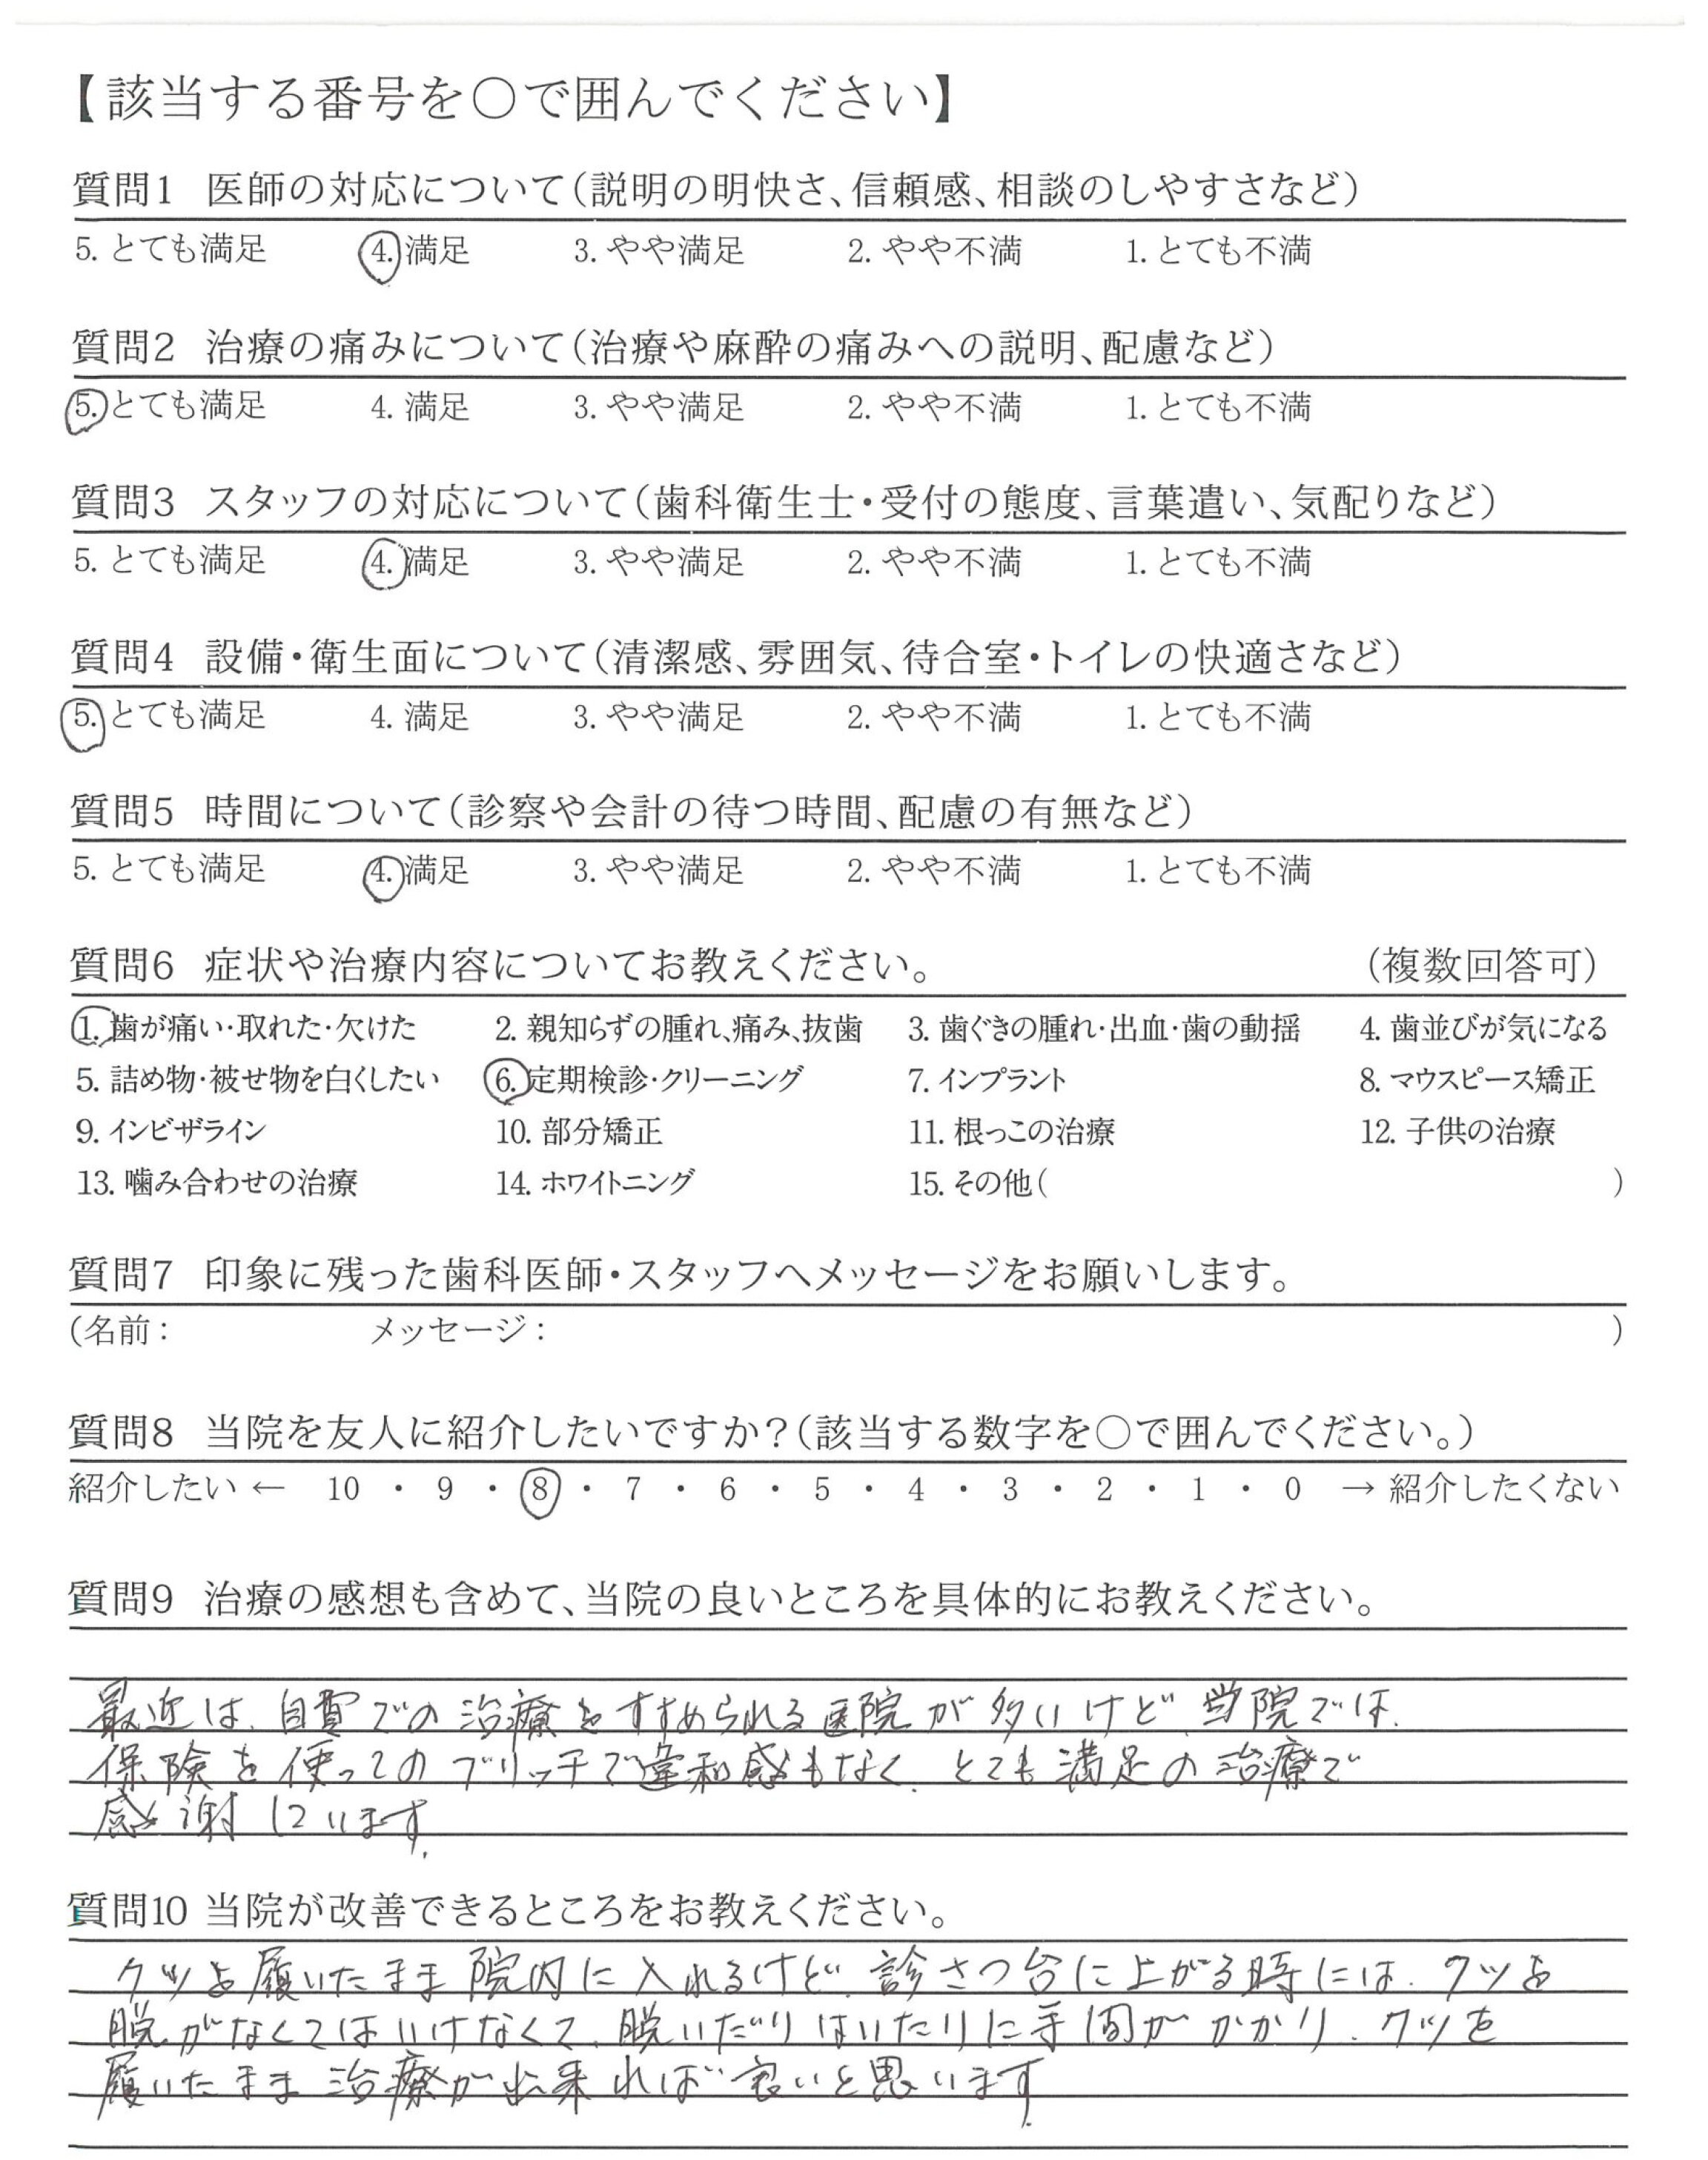 【該当する番号を○で囲んでください】
質問1 医師の対応について(説明の明快さ、信頼感、相談のしやすさなど)
5. とても満足 4. 満足 3. やや満足 2. やや不満 1. とても不満
質問2 治療の痛みについて(治療や麻酔の痛みへの説明、配慮など)
5. とても満足 4. 満足 3. やや満足 2. やや不満 1. とても不満
質問3 スタッフの対応について(歯科衛生士・受付の態度、言葉遣い、気配りなど)
5. とても満足 4. 満足 3. やや満足 2. やや不満 1. とても不満
質問4 設備・衛生面について(清潔感、雰囲気、待合室・トイレの快適さなど)
5. とても満足 4. 満足 3. やや満足 2. やや不満 1. とても不満
質問5 時間について(診察や会計の待つ時間、配慮の有無など)
5. とても満足 4. 満足 3. やや満足 2. やや不満 1. とても不満
質問6 症状や治療内容についてお教えください。 (複数回答可)
1. 歯が痛い・取れた・欠けた 2. 親知らずの腫れ、痛み、抜歯 3. 歯ぐきの腫れ・出血・歯の動揺 4. 歯並びが気になる
5. 詰め物・被せ物を白くしたい 6. 定期検診・クリーニング 7. インプラント 8. マウスピース矯正
9. インビザライン 10. 部分矯正 11. 根っこの治療 12. 子供の治療
13. 噛み合わせの治療 14. ホワイトニング 15. その他( )
質問7 印象に残った歯科医師・スタッフへメッセージをお願いします。
(名前: メッセージ: )
質問8 当院を友人に紹介したいですか?(該当する数字を○で囲んでください。)
紹介したい ← 10 ・ 9 ・ 8 ・ 7 ・ 6 ・ 5 ・ 4 ・ 3 ・ 2 ・ 1 ・ 0 → 紹介したくない
質問9 治療の感想も含めて、当院の良いところを具体的にお教えください。
最近は、自費での治療をすすめられる医院が多いけど、当院では、
保険を使ってのブリッチで違和感もなく、とても満足の治療で
感謝しています。
質問10 当院が改善できるところをお教えください。
クツを履いたまま院内に入れるけど、診さつ台に上がる時には、クツを
脱がなくてはいけなくて、脱いだりはいたりに手間がかかり、クツを
履いたまま治療が出来れば良いと思います。